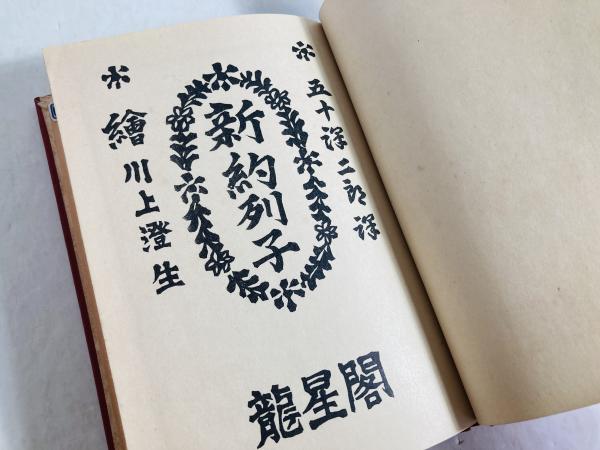 五十澤二郎譯
新約列子
繪 川上澄生
龍星閣